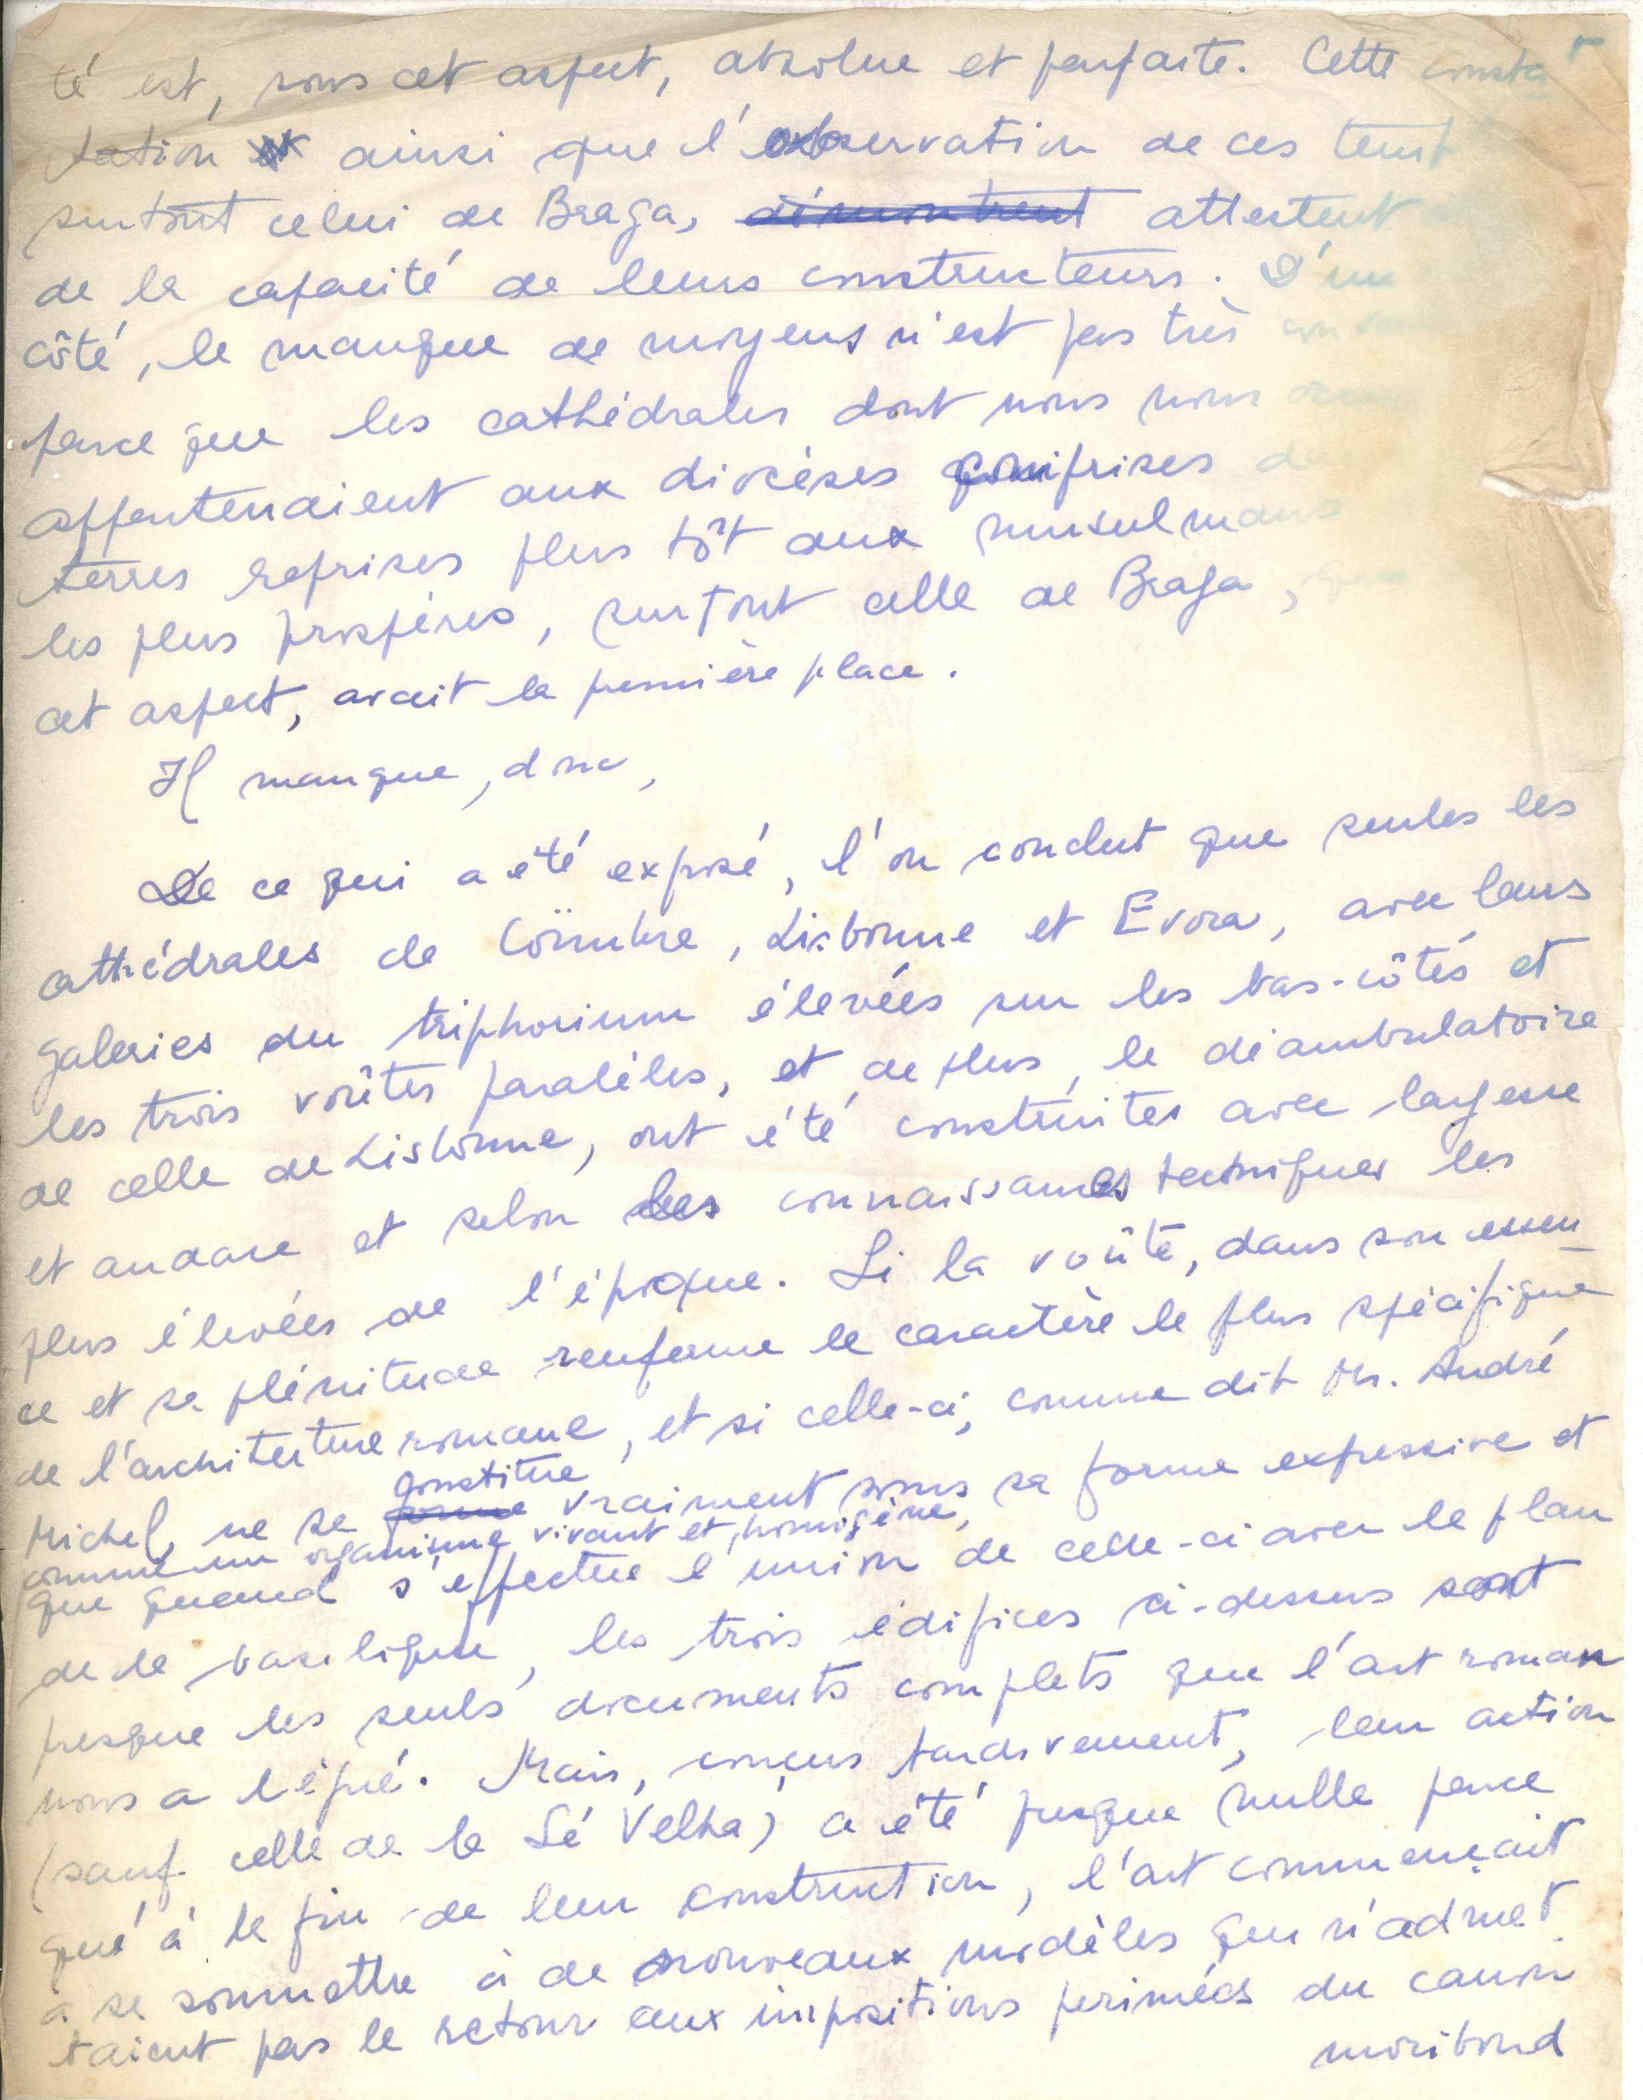 té est, sous cet aspect, absolue et parfaite. Cette consta
tation ainsi que l'observation de ces
surtout celui de Braga, démontrent attestent
de la capacité de leurs constructeurs. D'un
côté, le manque de moyens n'est pas très
parce que les cathédrales dont nous nous
appartenaient aux diocèses comprises
terres reprises plus tôt aux musulmans
les plus prospères, surtout celle de Braga,
cet aspect, avait la première place.
Il manque, donc,
De ce qui a été exposé, l'on conclut que seules les
cathédrales de Coïmbre, Lisbonne et Evora, avec leurs
galeries du triphorium élevées sur les bas-côtés et
les trois voûtes paralèles, et de plus, le déambulatoire
de celle de Lisbonne, ont été construites avec largesse
et audace et selon les connaissances techniques les
plus élevées de l'époque. Si la voûte, dans son essen
ce et sa plénitude renferme le caractère le plus spécifique
de l'architecture romane, et si celle-ci, comme dit Mr. André
Michel, ne se forme constitue vraiment sous sa forme expressive et
comme un organisme vivant et homigène,
que quand s'effectue l'union de celle-ci avec le plan
de la basilique, les trois édifices ci-dessus sont
presque les seuls documents complets que l'art roman
nous a légué. Mais, conçus tardivement, leur action
(sauf celle de la Sé Velha) a été presque nulle parce
qué à la fin de leur construction, l'art commençait
a se soumettre à de nouveaux modèles qui n'admet
taient pas le retour aux impositions perimées du canon
moribond